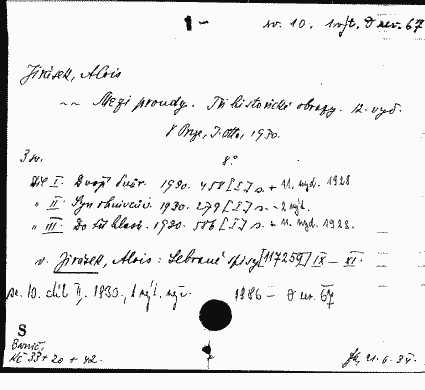 1 - sv. 10. 1 výt. D rev. 67
Jirásek, Alois
~~ Mezi proudy. Tři historické obrazy. 12. vyd.
V Praze, J. Otto, 1930.
3 sv. 8°
Díl I: Dvojí dvůr. 1930. 458 [I] s. + 11. vyd. 1928
" II: Syn ohnivcův. 1930. 279 [I] s. - 2 výt.
" III: Do tří hlasů. 1930. 586 [I] s. + 11. vyd. 1928.
v. Jirásek, Alois: Sebrané spisy [117259] IX - XI.
sv. 10. díl II, 1930., 1 výt. 1986 - D rev. 67
S
NE 33 + 20 + 42.